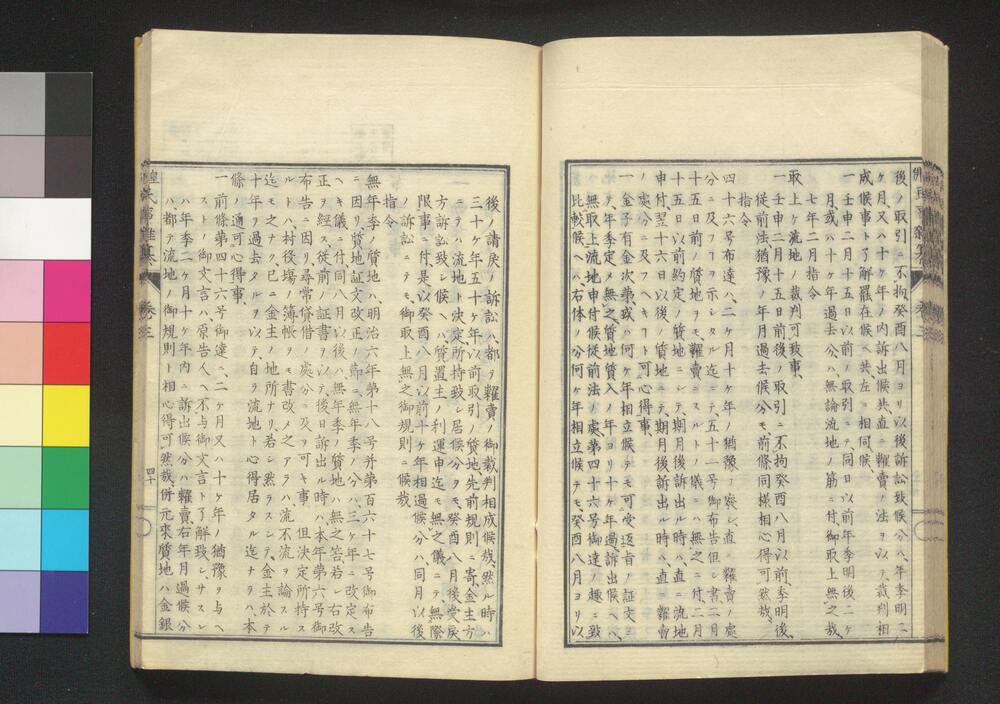 後ノ取引ニ不拘癸酉八月ヨリ以後訴訟致候分ハ、年季明二
ケ月、又ハ十ケ年ノ内訴出候共、直ニ糶賣ノ法ヲ以テ、裁判相
成候事ト了解罷在候ヘ共、左ニ相伺候、
一壬申二月十五日以前ノ取引ニテ、同日以前年季明後二ケ
月、或ハ十ケ年過去分ハ、無論流地ノ筋ニ付、御取上無之哉、
七年二月指令
取上ケ流地ノ裁判可致事、
一壬申二月十五日前後ノ取引ニ不拘癸酉八月以前、季明後、
従前法猶豫ノ年月過去候分モ、前條同様相心得可然哉、
指令
四十六号布達ハ、二ケ月十ケ年ノ猶豫ヲ廃シ、直ニ糶賣ノ處
分ニ及フヲ示シタル迄ニテ、五十一号御布告但シ書、二月
十五日前ノ質地ヲモ、糶賣ニスルトノ儀ニハ無之ニ付、二月
十五日以前約定ノ質地ニシテ、期月後訴出ル時ハ、直ニ流地
申付、翌十六日以後ノ質地ニテ、期月後訴出ル時ハ、直ニ糶賣
ノ處分ニ及フヘキコト、可心得事、
一金子有合次第、或ハ何ケ年相立候テモ可受返旨ノ証文ニ
テ、年季定メ無之質地質入ノ年ヨリ、十ケ年過訴出候ヘハ、
無取上流地申付候従前法ノ處、第四十六号御達ノ趣ニ致
比較候ヘハ、右体ノ分何ケ年相立候テモ、癸酉八月ヨリ以
後、請戻ノ訴訟ハ都テ糶賣ノ御裁判相成候哉、然ル時ハ
三十ケ年五十ケ年以前取引ノ質地、先前規則ニ寄、金主方
ニテハ流地ト決定所持致シ居候分ヲモ、癸酉八月後受戻
方訴訟致シ候ヘハ、質置主ノ利運申迄モ無之儀ニテ、無際
限事ニ付、是以癸酉八月以前、十ケ年相過候分ハ、同月以後
ノ訴訟ニテモ、御取上無之御規則ニ候哉
指令
無年季ノ質地ハ、明治六年第十八号并第百六十七号御布告
ニ因リ、質地証文改正ノ節、無年季ノ分ハ、三ケ年ニ改定ス
ヘキ儀ニ付、同八月以後ハ、無年季ノ質地ハ無之筈、若シ右改
正ヲ経ス、従前ノ証書ヲ以テ、後日訴出ル時ハ、本年第六号御
布告ニ因リ、尋常貸借ノ處分ニ及フ可キ事、但決定所持ス
ルトハ、村役場ノ簿帳ヲモ書改メ之アラハ、流不流ヲ論スル
迄モ之ナク、已ニ金主ノ地所ナリ、若シ然ラスシテ、金主於テ
十年ヲ過去タルヲ以テ、自ラ流地ト心得居タル迄ナラハ、本
條ノ通可心得事、
一前條第四十六号御達ニ、二ケ月又ハ十ケ年ノ猶豫ヲ与ヘ
ストノ御文言ハ、原告人ヘ不与御文言ト了解致シ、サスレ
ハ年季二ケ月十ケ年内ニ訴出候分ハ糶賣、右年月過候分
ハ都テ流地ノ御規則ト相心得可然哉、併元來質地ハ金銀
卷三
四十